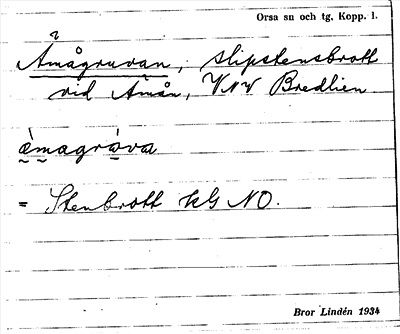 Orsa sn och tg, Kopp. l.
Åmågruvan, slipstensbrott
vid Åmån, VNV Bredlien
= Stenbrott kG NO.
Bror Lindén 1934